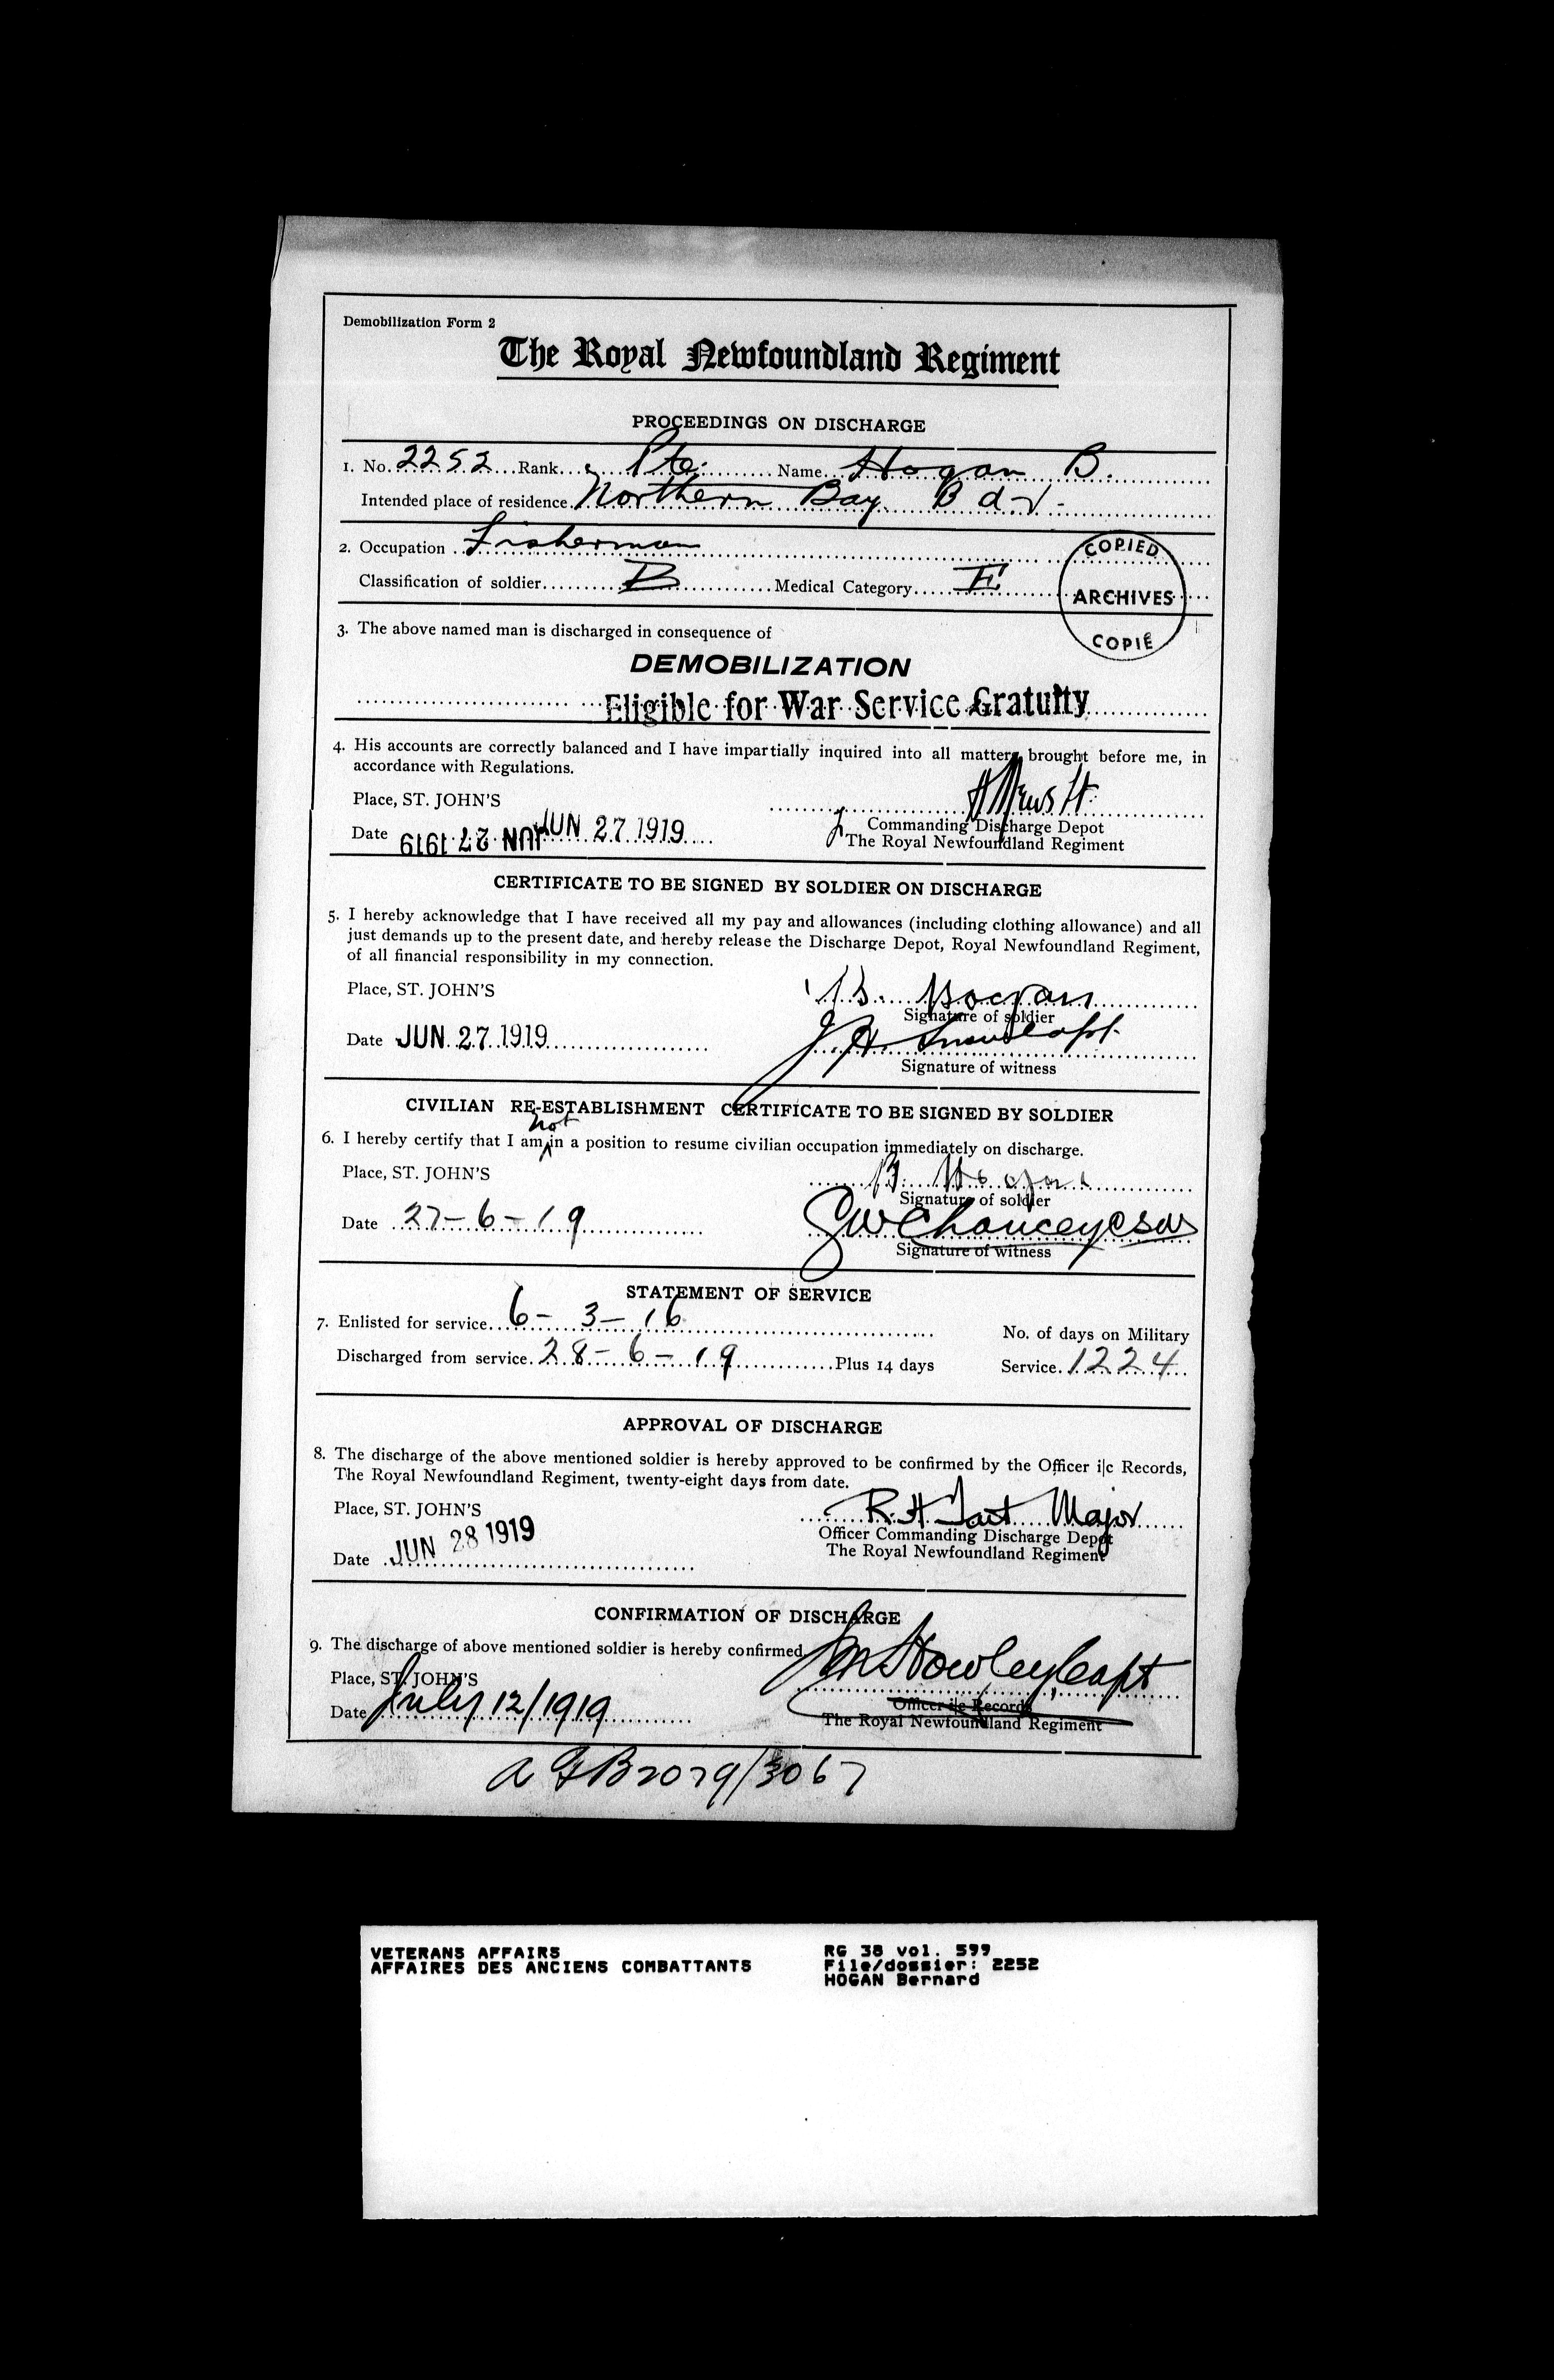 Demobilization Form 2
The Royal Newfoundland Regiment
PROCEEDINGS ON DISCHARGE
1. No. 2252 Rank Pte. Name Hogan B.
Intended place of residence Northern Bay B d V -
2. Occupation Fisherman
Classification of soldier B Medical Category E
COPIED
ARCHIVES
COPIÉ
3. The above named man is discharged in consequence of
DEMOBILIZATION
Eligible for War Service Gratuity
4. His accounts are correctly balanced and I have impartially inquired into all matters brought before me, in
accordance with Regulations.
Place, ST. JOHN'S
Date JUN 27 1919 JUN 27 1919
Commanding Discharge Depot
The Royal Newfoundland Regiment
CERTIFICATE TO BE SIGNED BY SOLDIER ON DISCHARGE
5. I hereby acknowledge that I have received all my pay and allowances (including clothing allowance) and all
just demands up to the present date, and hereby release the Discharge Depot, Royal Newfoundland Regiment,
of all financial responsibility in my connection.
Place, ST. JOHN'S
B. Hogan
Signature of soldier
Date JUN 27 1919
J. H. Snow Capt
Signature of witness
CIVILIAN RE-ESTABLISHMENT CERTIFICATE TO BE SIGNED BY SOLDIER
6. I hereby certify that I am not in a position to resume civilian occupation immediately on discharge.
Place, ST. JOHN'S
B. Hogan
Signature of soldier
Date 27-6-19
Chancey
Signature of witness
STATEMENT OF SERVICE
7. Enlisted for service 6-3-16
No. of days on Military
Discharged from service 28-6-19 Plus 14 days Service 1224
APPROVAL OF DISCHARGE
8. The discharge of the above mentioned soldier is hereby approved to be confirmed by the Officer i|c Records,
The Royal Newfoundland Regiment, twenty-eight days from date.
Place, ST. JOHN'S
R. H. Tait Major
Officer Commanding Discharge Depot
The Royal Newfoundland Regiment
Date JUN 28 1919
CONFIRMATION OF DISCHARGE
9. The discharge of above mentioned soldier is hereby confirmed
Place, ST. JOHN'S
Howley, Capt
Date July 12/1919
Officer i|c Records
The Royal Newfoundland Regiment
A F B 2079/3067
VETERANS AFFAIRS
AFFAIRES DES ANCIENS COMBATTANTS
RG 38 vol. 599
File/dossier: 2252
HOGAN Bernard